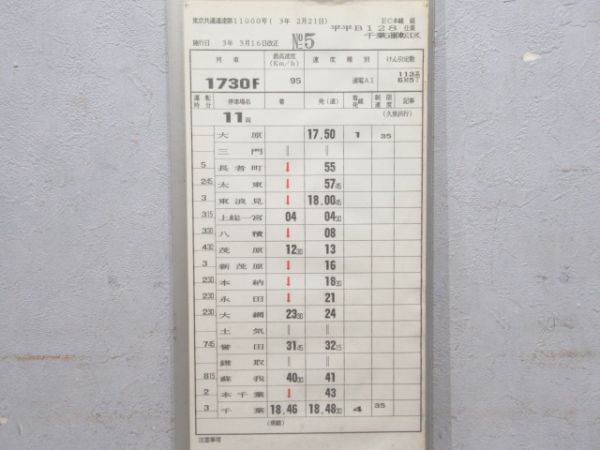 東京共通運達第11000号(3年 2月21日)
EC本線 組
平平B128 仕業
千葉運転区
施行日 3年 3月16日改正 №5
列車 最高速度(Km/h) 速度種別 けん引定数
1730F 95 通電A1 113系 6M5T
運転時分 停車場名 着 発(通) 着発線 制限速度 記事
11両 (久里浜行)
大原 17.50 1 35
三門 ‖ ‖
5 長者町 ↓ 55
245 太東 ↓ 57 45
3 東浪見 ↓ 18.00 45
315 上総一宮 04 04 30
300 八積 ↓ 08
430 茂原 12 30 13
3 新茂原 ↓ 16
230 本納 ↓ 18 30
230 永田 ↓ 21
230 大網 23 30 24
土気 ‖ ‖
745 誉田 31 45 32 15
鎌取 ‖ ‖
815 蘇我 40 30 41
2 本千葉 ↓ 43
3 千葉 18.46 18.48 30 4 35
注意事項